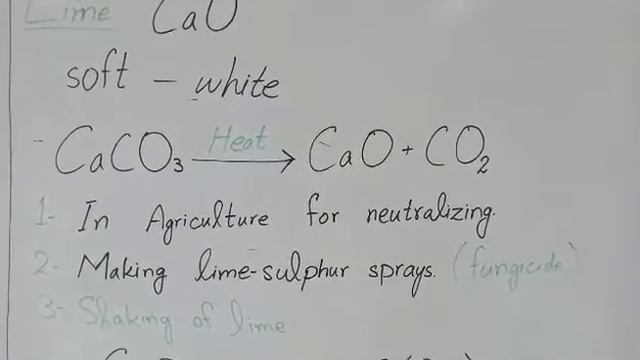 Lime CaO
soft - white
- CaCO₃ Heat → CaO + CO₂
1- In Agriculture for neutralizing.
2- Making lime-sulphur sprays. (fungicide)
3- Slaking of lime